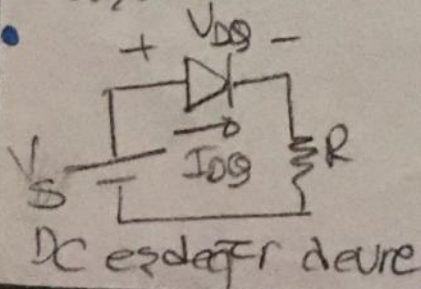 + VDQ -
IDQ
VS
R
DC eşdeğer devre